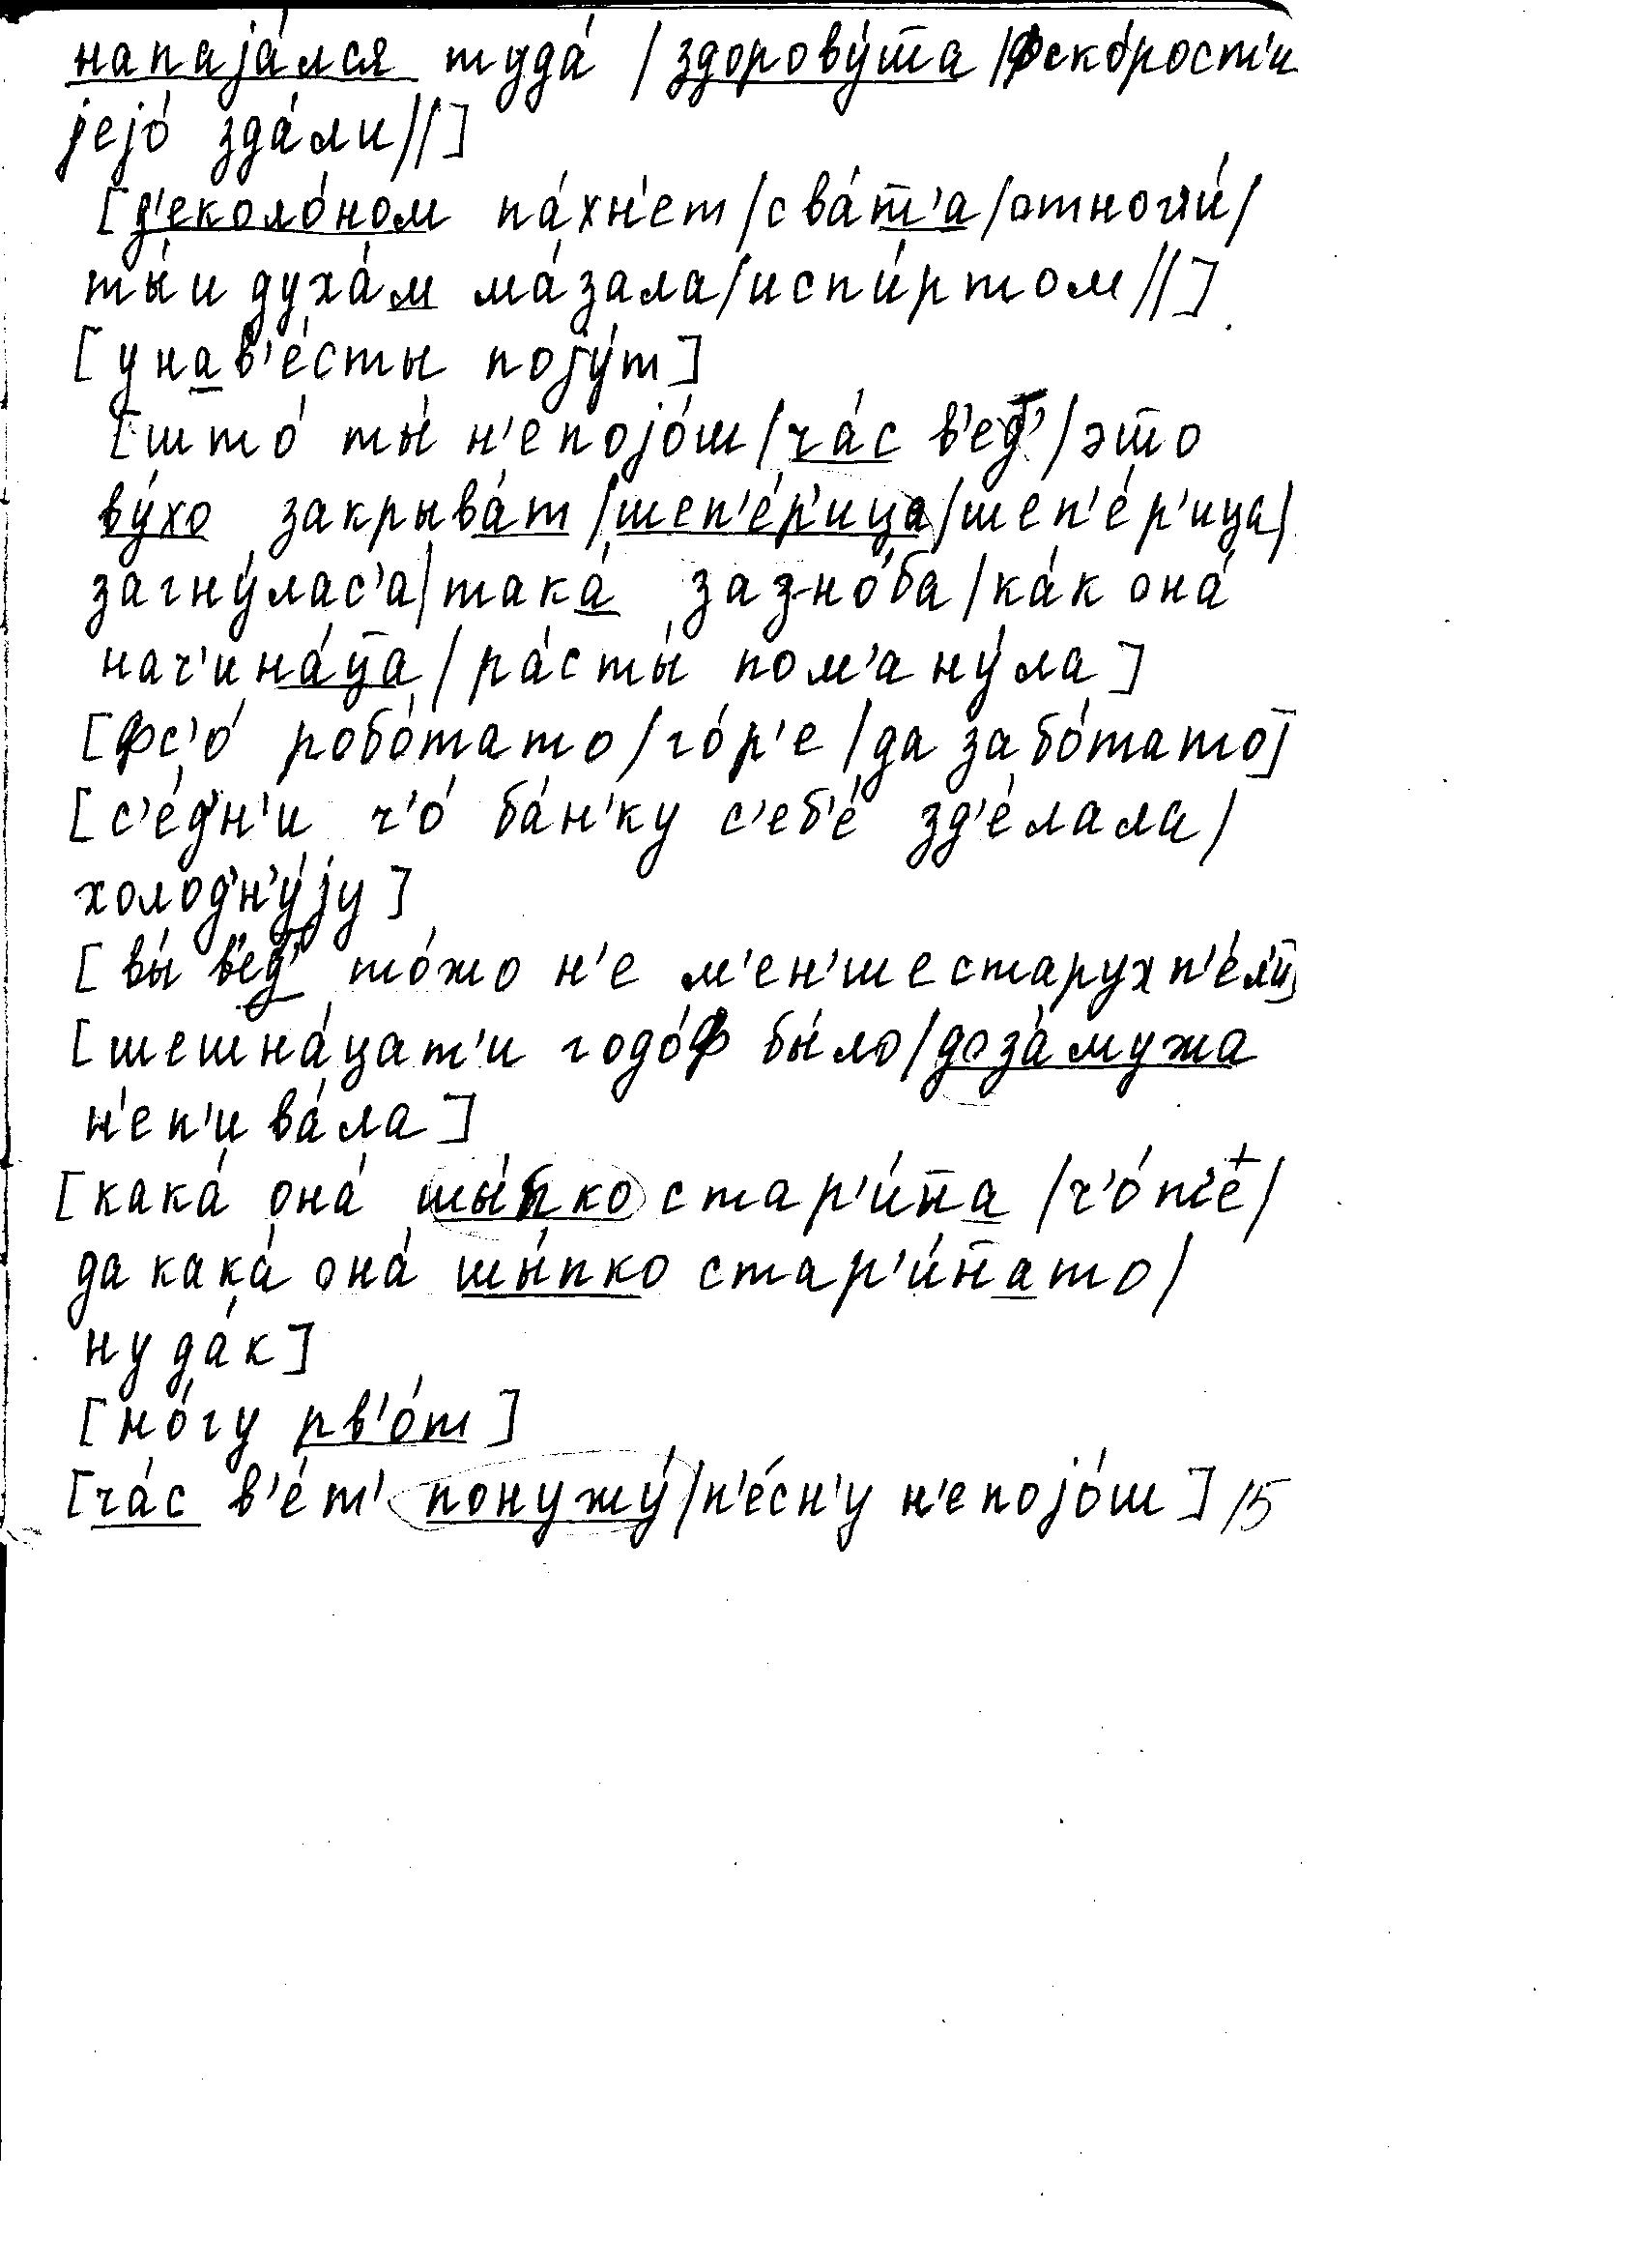 напаjа́лся туда́ /здорову́т̅а /фско́рост'и
jejо́ зда́ли//]
[д'еколо́ном па́хн'ет/сва́т̅'а/отноги́/
ты́и духа́м ма́зала/испи́ртом//]
[унав'е́сты поjу́т]
[што́ ты́ н'епоjо́ш/ча́с в'ед'/эт̅о
ву́хо закрыва́т/шеп'е́р'ица/шеп'е́р'ица/
загну́лас'а/така́ зазно́ба/ка́к она́
нач'ина́ц̅а/ра́сты́ пом'ану́ла]
[фс'о́ робо́тато/го́р'е/да забо́тато]
[с'е́дн'и ч'о́ ба́н'ку с'еб'е́ зд'е́лала/
холодн'у́jу]
[вы́ в'ед' то́жо н'е м'ен'шестарухп'е́л'и]
[шешна́цат'и годо́ф бы́ло/доза́мужа
н'еп'ива́ла]
[кака́ она́ шы́пко стар'и́н̅а /ч'о́ т'е́/
да кака́ она́ шы́пко стар'и́н̅ато/
ну да́к]
[но́гу рв'о́т]
[ча́с в'е́т' понужу́/п'е́сн'у н'епоjо́ш] 15